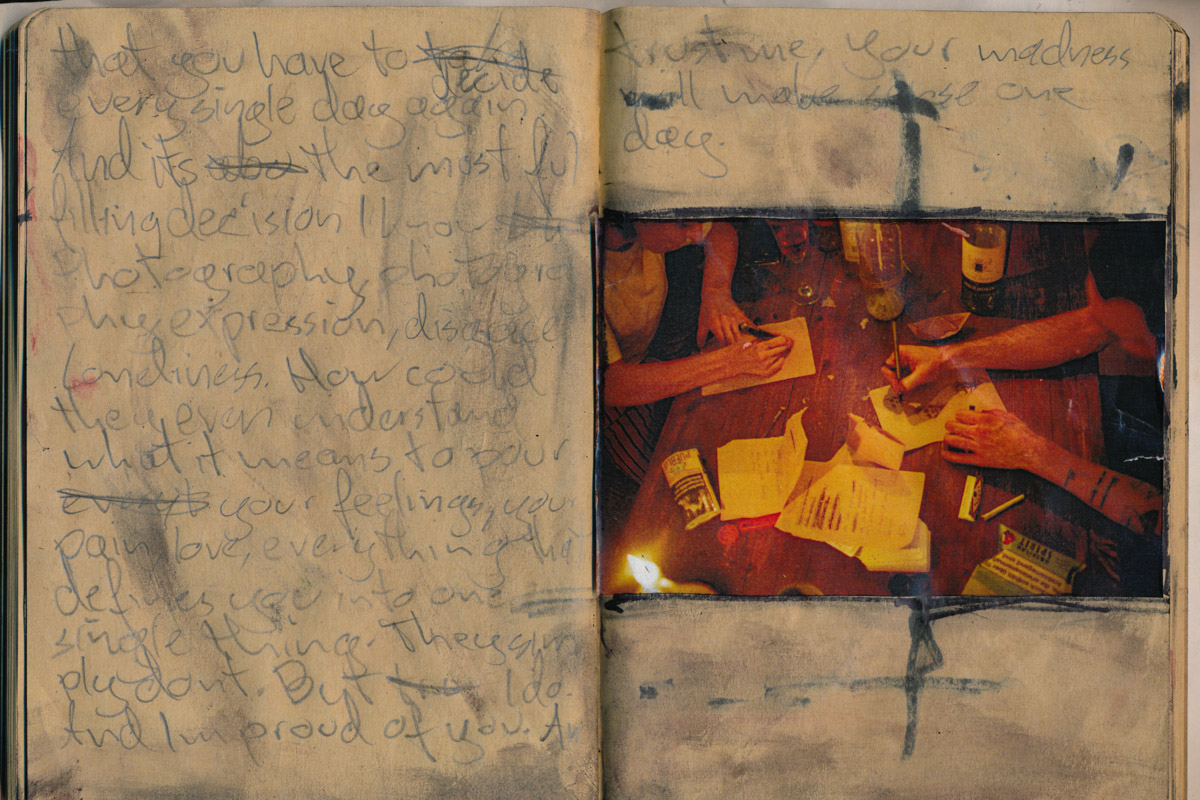 that you have to
decide
every single day again
And its the most ful
filling decision I
Photography, photogra
phy, expression,
Loneliness. How could
they even understand
what it means to pour
your feelings, your
pain love, everything tha
defines you into one
single thing. They sim
ply dont. But I do.
And I'm proud of you. An
trust me, your madness
will make sense one
day.
PUEBLO
SPIRIT